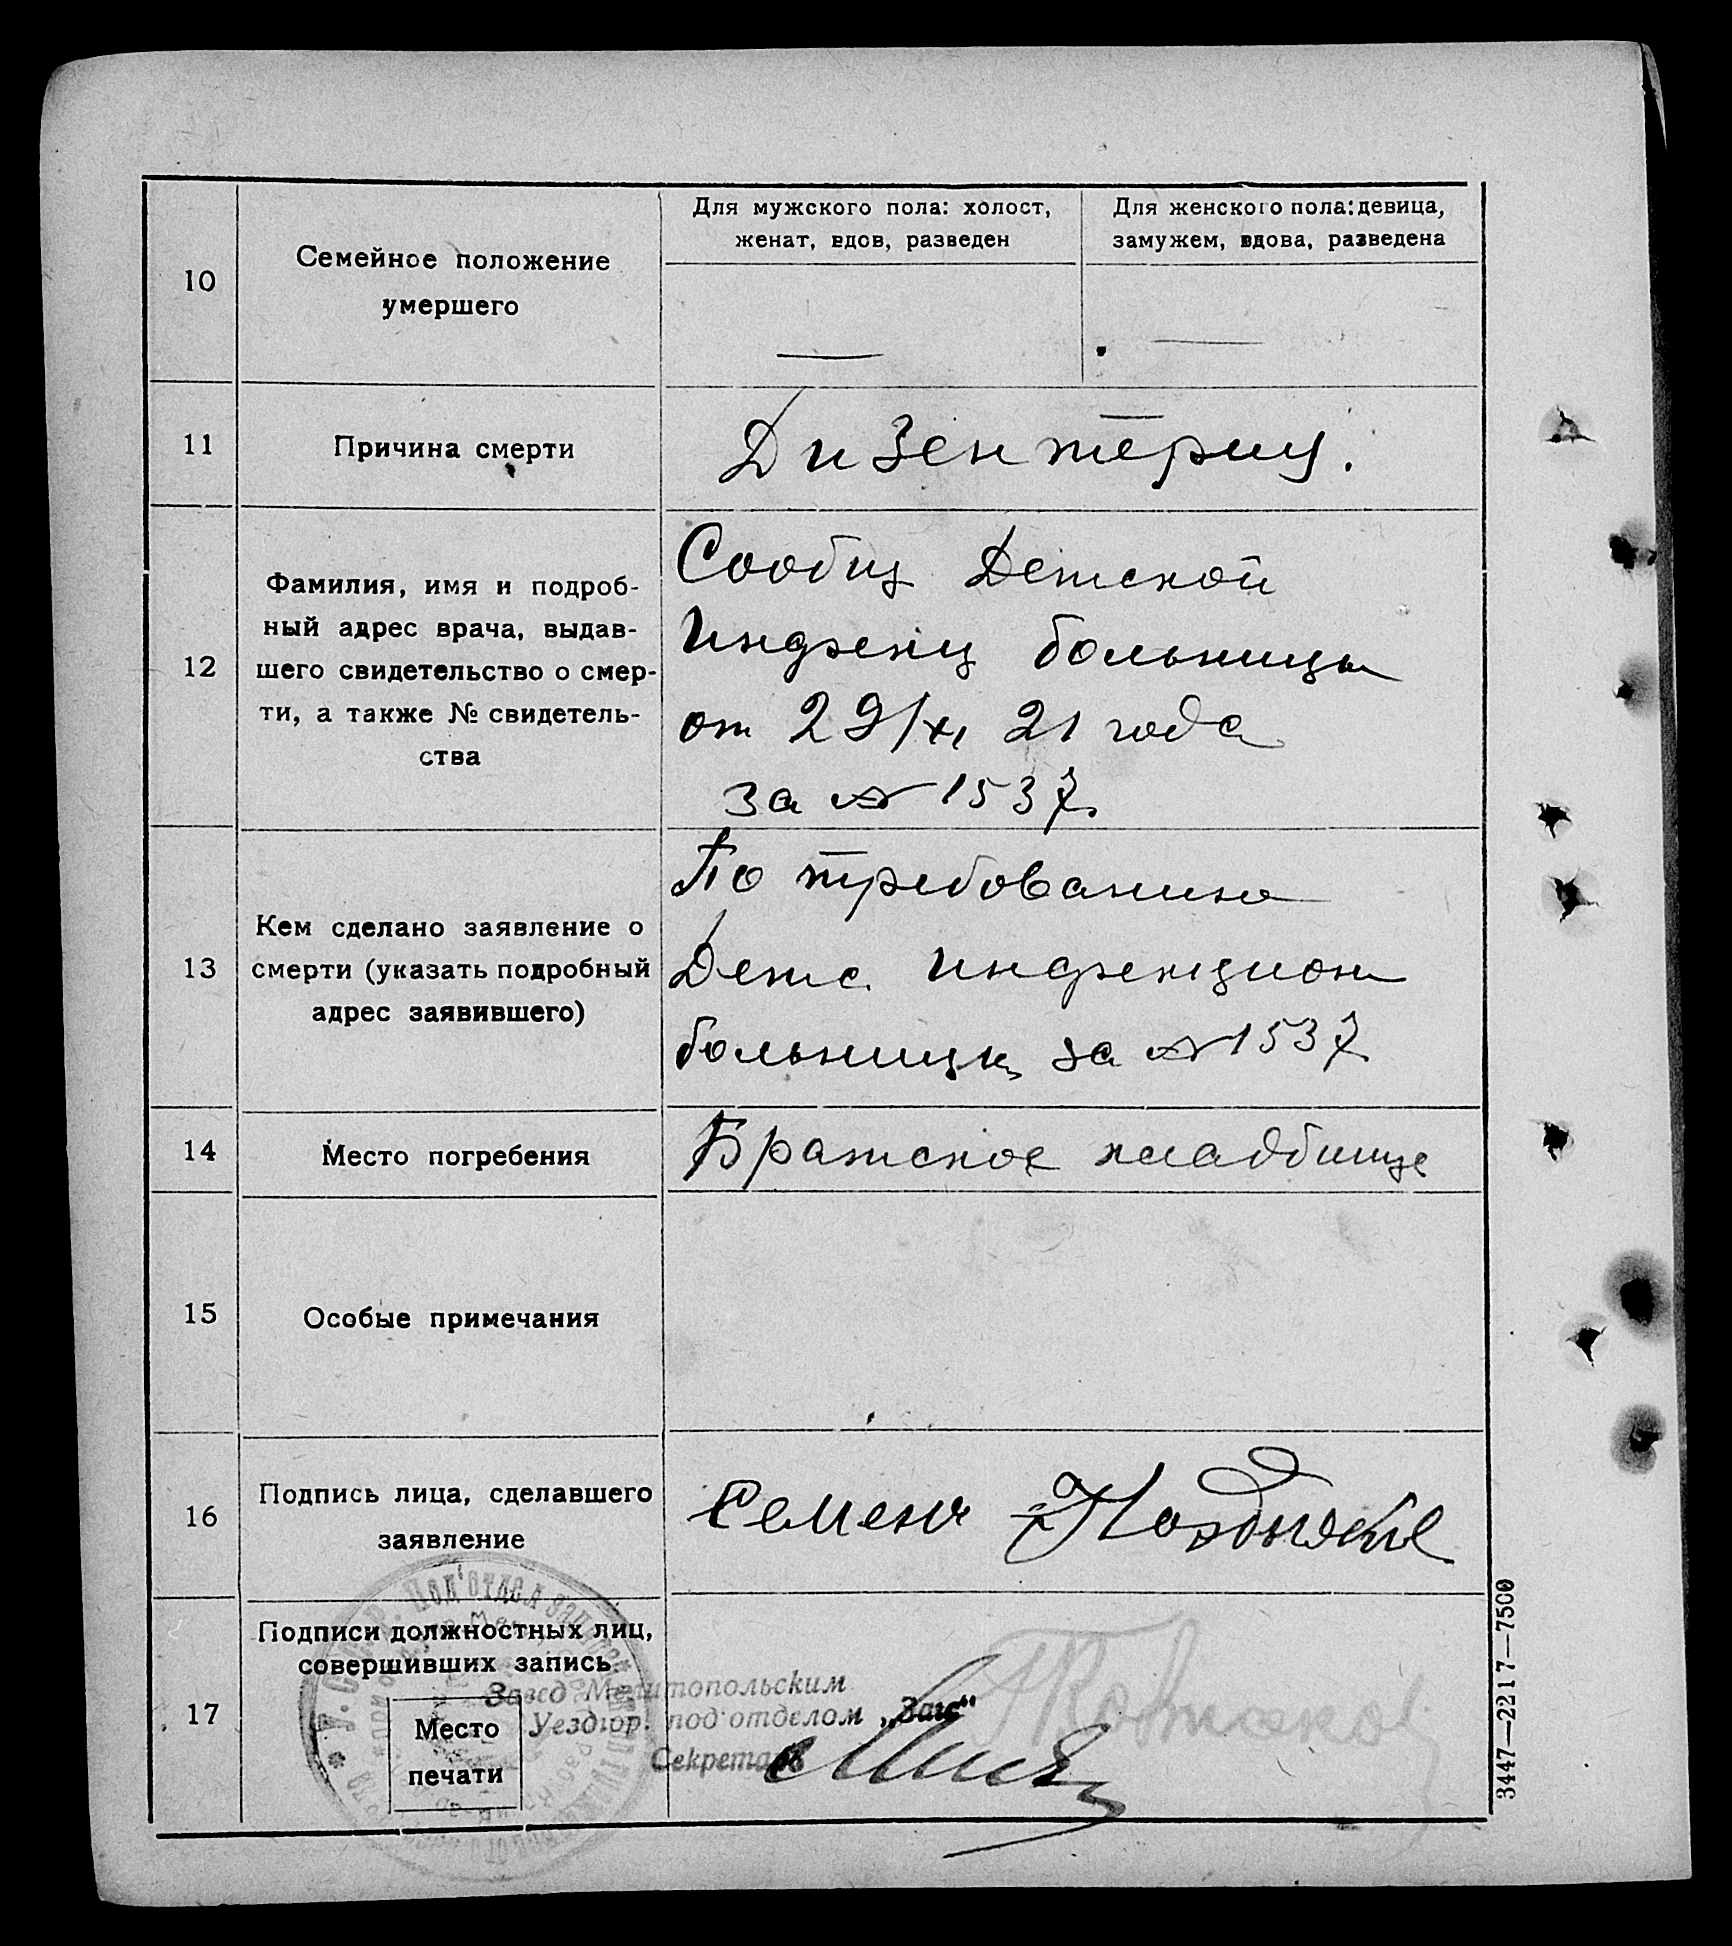 10
Семейное положение
умершего
Для мужского пола: холост,
женат, вдов, разведен
Для женского пола: девица,
замужем, вдова, разведена
—
—
11
Причина смерти
Дизентерия.
12
Фамилия, имя и подроб-
ный адрес врача, выдав-
шего свидетельство о смер-
ти, а также № свидетель-
ства
Сообщ Детской
Инфекц больницы
от 29/XI 21 года
за № 1537.
13
Кем сделано заявление о
смерти (указать подробный
адрес заявившего)
По требованию
Детс. инфекцион
больницы за № 1537
14
Место погребения
Братское кладбище
15
Особые примечания
16
Подпись лица, сделавшего
заявление
Семен
17
Подписи должностных лиц,
совершивших запись.
Место
печати
Завед Мелитопольским
Уездюр. под'отделом „Загс“
Секретарь
3447—2217—7500